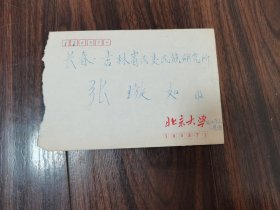 长春·吉林省民委民族研究所
张 璇 如 收
北京大学
100871